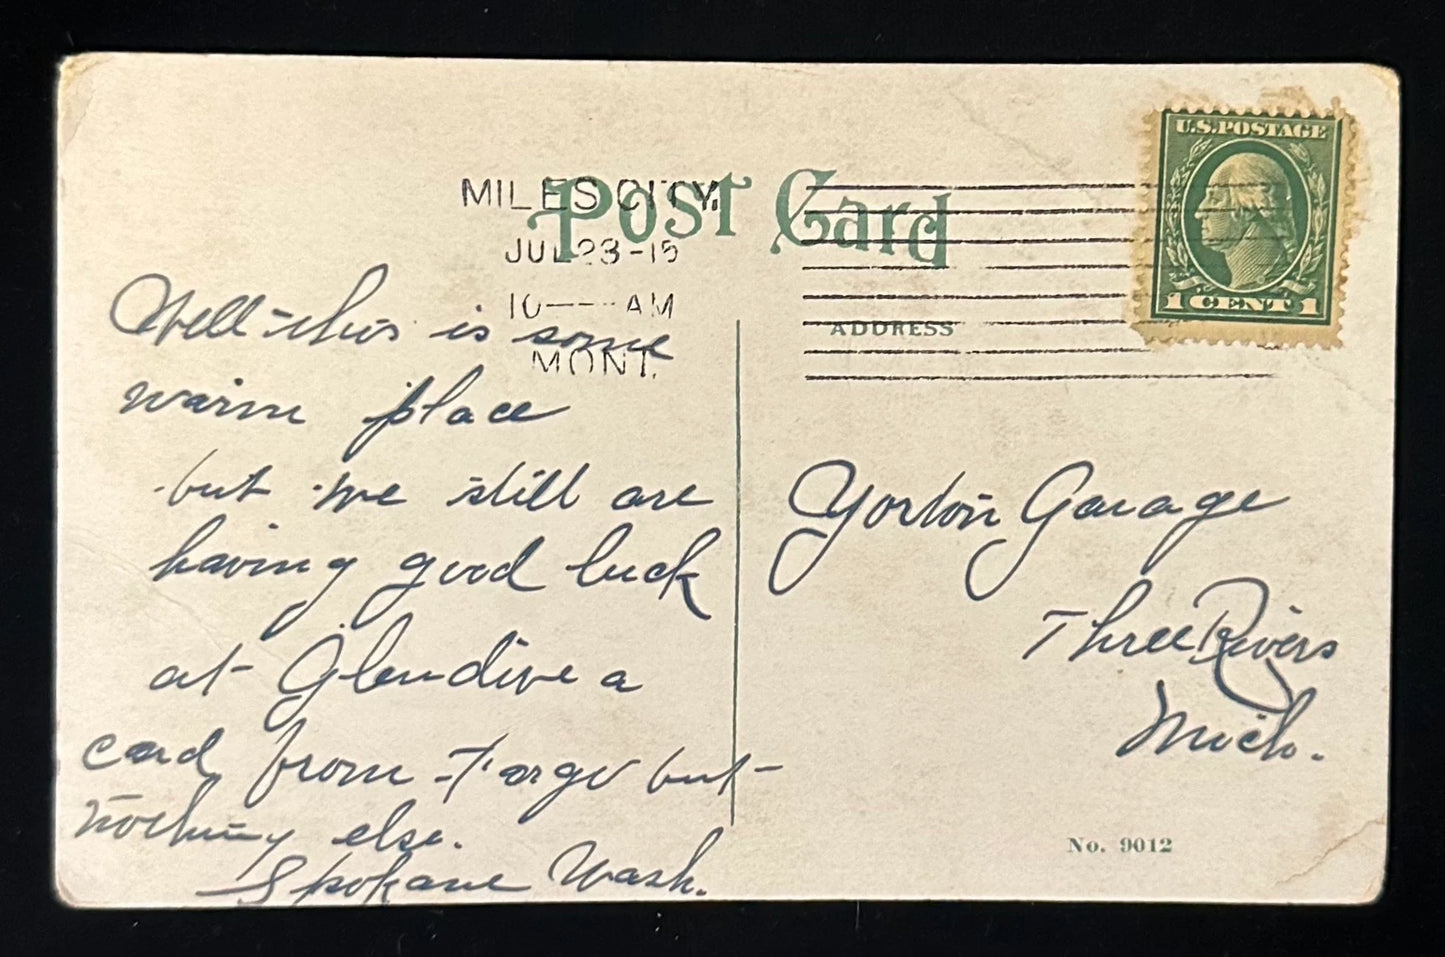 U.S.POSTAGE
1 CENT 1
Post Card
MILES CITY,
JUL 23-15
10 — AM
MONT.
ADDRESS
Well this is some
warm place
but we still are
having good luck
at Glendive a
card from Fargo but
nothing else.
Spokane Wash.
Yorton Garage
Three Rivers
Mich.
No. 9012